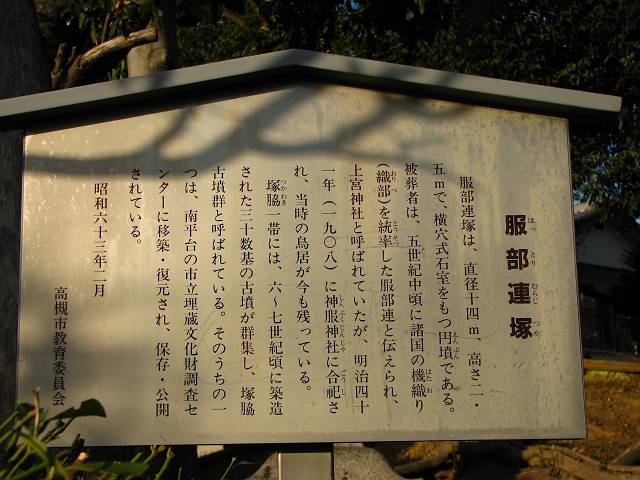 服部連塚
はっとりむらじづか
服部連塚は、直径十四m、高さ二・
五mで、横穴式石室をもつ円墳である。
被葬者は、五世紀中頃に諸国の機織り
(織部)を統率した服部連と伝えられ、
上宮神社と呼ばれていたが、明治四十
一年(一九〇八)に神服神社に合祀さ
れ、当時の鳥居が今も残っている。
塚脇一帯には、六〜七世紀頃に築造
された三十数基の古墳が群集し、塚脇
古墳群と呼ばれている。そのうちの一
つは、南平台の市立埋蔵文化財調査セ
ンターに移築・復元され、保存・公開
されている。
昭和六十三年二月
高槻市教育委員会